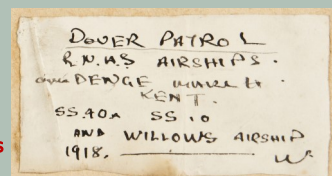 DOVER PATROL
R.N.A.S AIRSHIPS.
over DENGE MARSH
KENT.
SS.40A SS 10
AND WILLOWS AIRSHIP
1918.
s